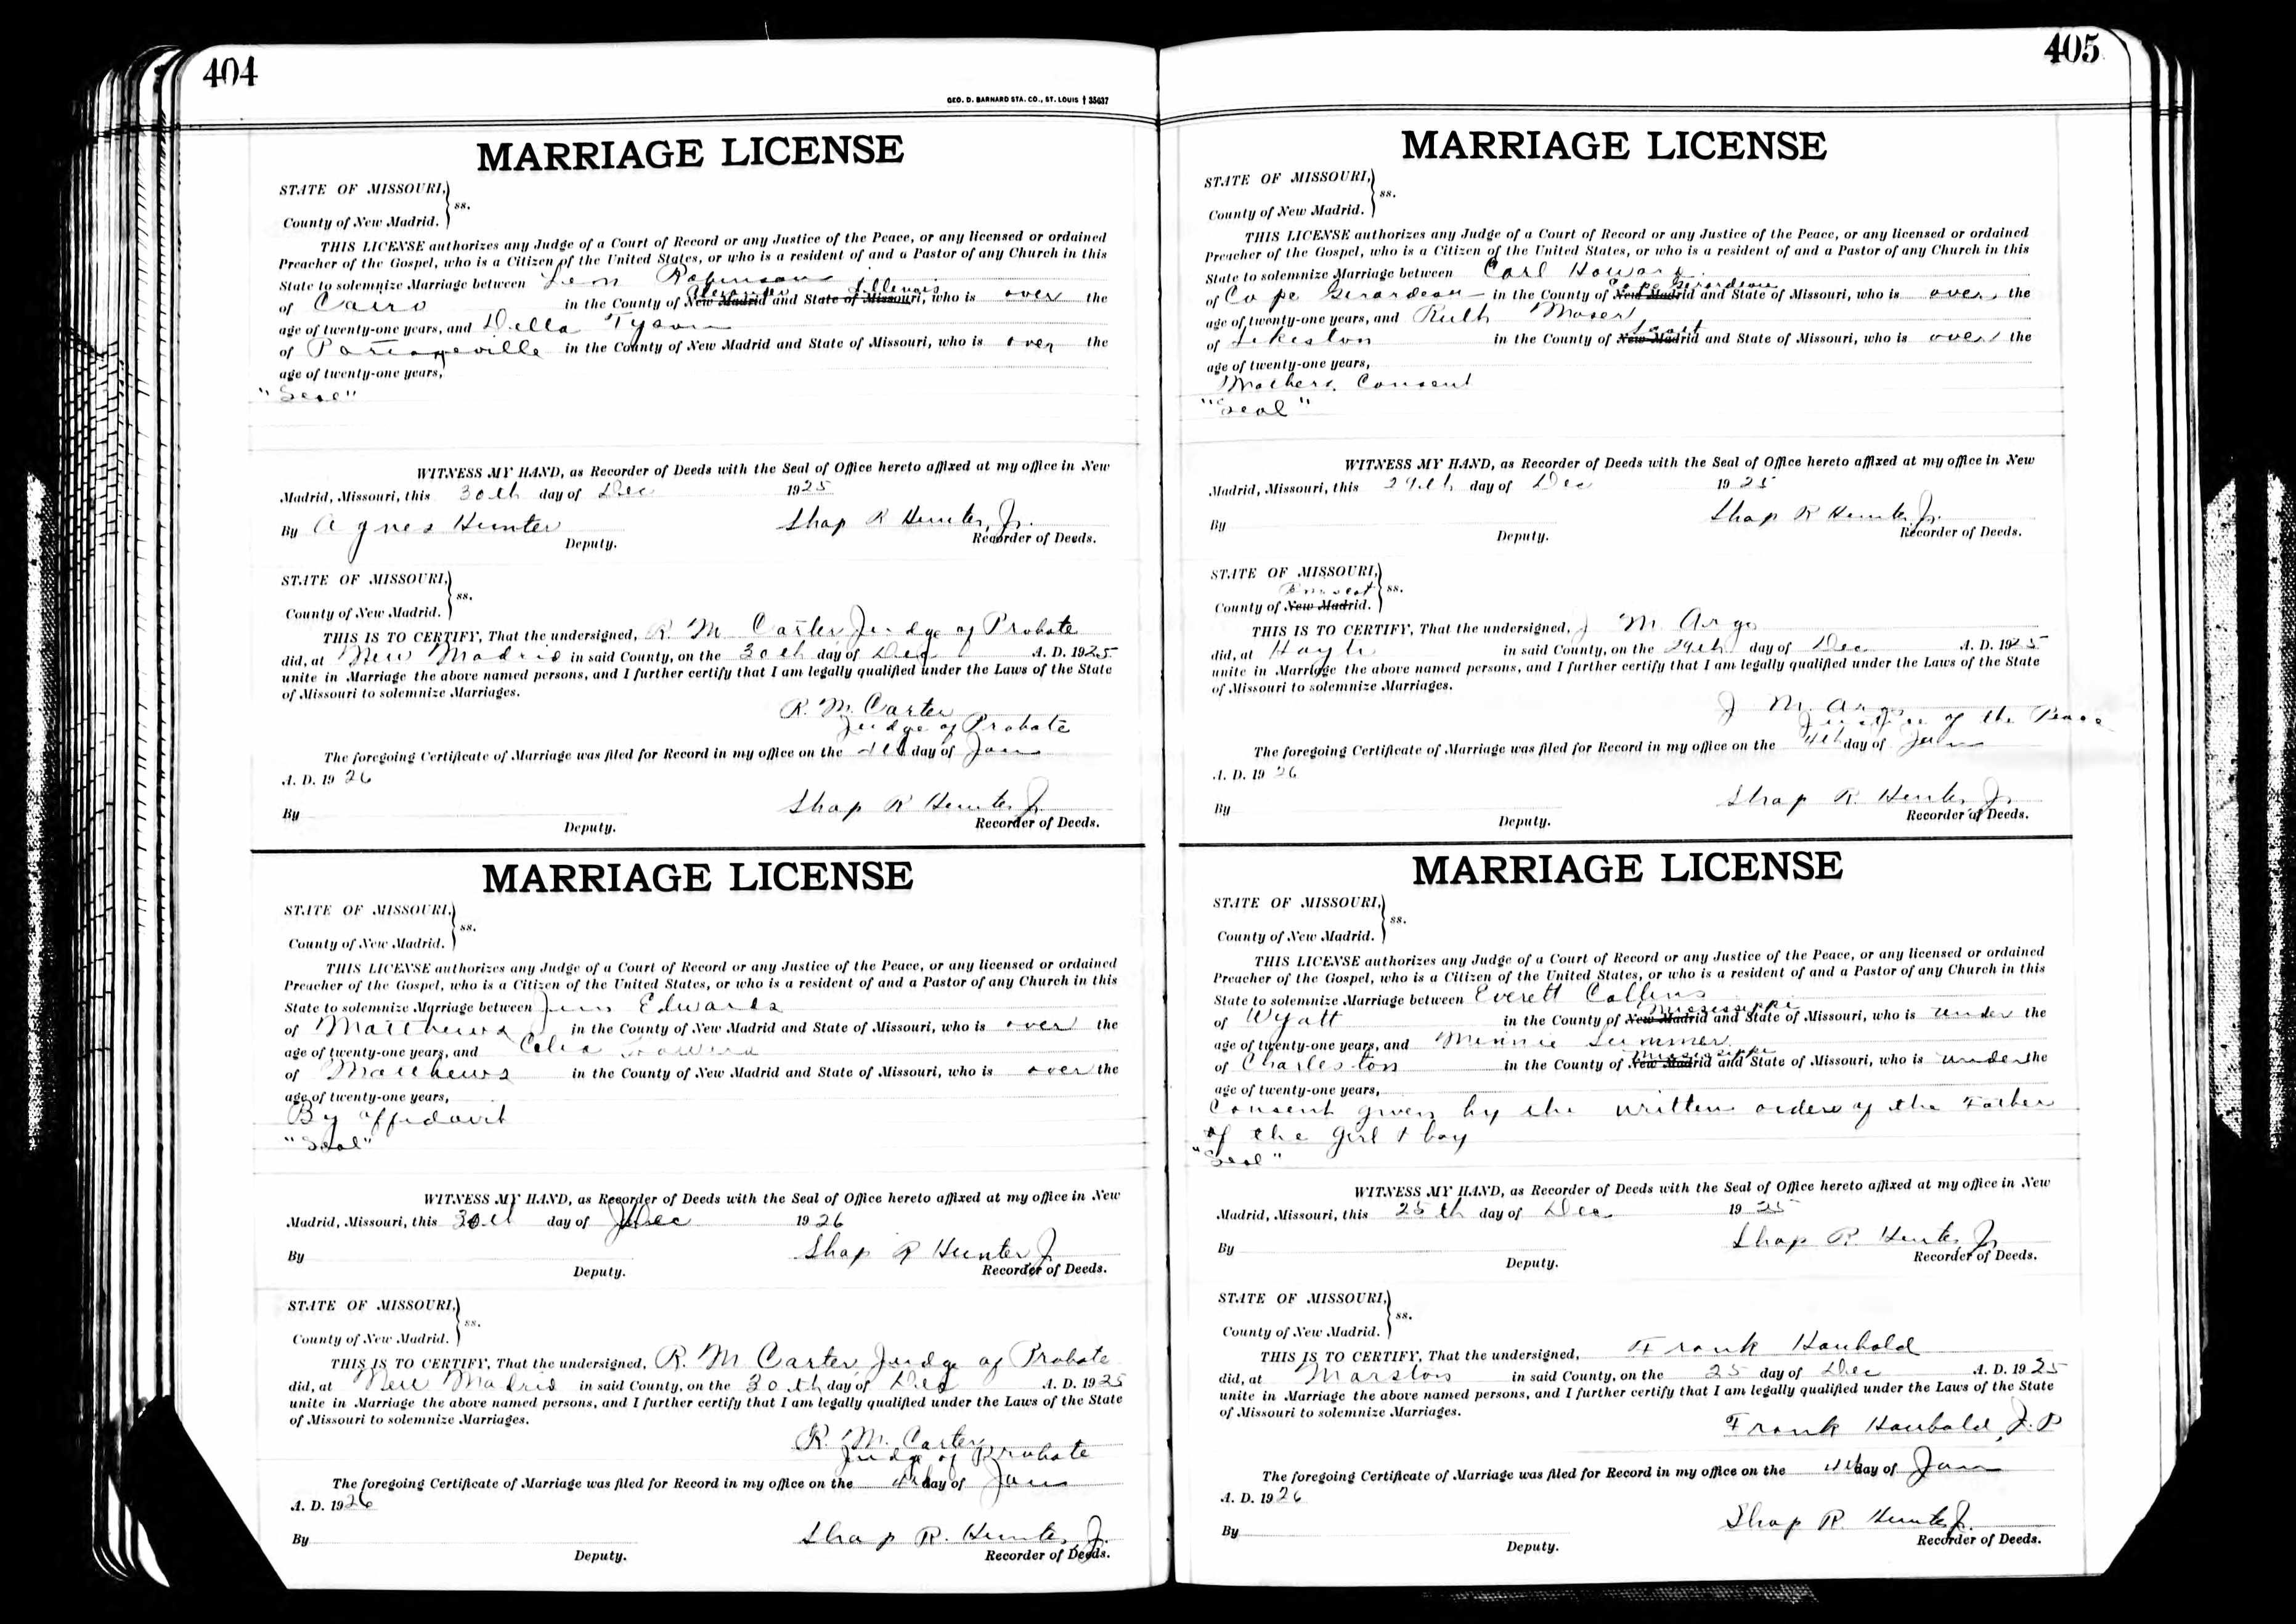 404
GEO. D. BARNARD STA. CO., ST. LOUIS † 35637
MARRIAGE LICENSE
STATE OF MISSOURI, } ss.
County of New Madrid.
THIS LICENSE authorizes any Judge of a Court of Record or any Justice of the Peace, or any licensed or ordained
Preacher of the Gospel, who is a Citizen of the United States, or who is a resident of and a Pastor of any Church in this
State to solemnize Marriage between Leon Robinson
Alexander Illinois
of Cairo in the County of New Madrid and State of Missouri, who is over the
age of twenty-one years, and Della Tyson
of Portageville in the County of New Madrid and State of Missouri, who is over the
age of twenty-one years,
"Seal"
WITNESS MY HAND, as Recorder of Deeds with the Seal of Office hereto affixed at my office in New
Madrid, Missouri, this 30th day of Dec 1925
By Agnes Hunter Shap R Hunter, Jr.
Deputy. Recorder of Deeds.
STATE OF MISSOURI, } ss.
County of New Madrid.
THIS IS TO CERTIFY, That the undersigned, R. M Carter Judge of Probate
did, at New Madrid in said County, on the 30th day of Dec A. D. 1925
unite in Marriage the above named persons, and I further certify that I am legally qualified under the Laws of the State
of Missouri to solemnize Marriages.
R. M. Carter
Judge of Probate
The foregoing Certificate of Marriage was filed for Record in my office on the 4th day of Jan
A. D. 1926
By Shap R Hunter Jr.
Deputy. Recorder of Deeds.
MARRIAGE LICENSE
STATE OF MISSOURI, } ss.
County of New Madrid.
THIS LICENSE authorizes any Judge of a Court of Record or any Justice of the Peace, or any licensed or ordained
Preacher of the Gospel, who is a Citizen of the United States, or who is a resident of and a Pastor of any Church in this
State to solemnize Marriage between Jim Edwards
of Matthews in the County of New Madrid and State of Missouri, who is over the
age of twenty-one years, and Celia
of Matthews in the County of New Madrid and State of Missouri, who is over the
age of twenty-one years,
By affidavit
"Seal"
WITNESS MY HAND, as Recorder of Deeds with the Seal of Office hereto affixed at my office in New
Madrid, Missouri, this 30th day of Dec 1926
By Shap R Hunter Jr
Deputy. Recorder of Deeds.
STATE OF MISSOURI, } ss.
County of New Madrid.
THIS IS TO CERTIFY, That the undersigned, R. M Carter Judge of Probate
did, at New Madrid in said County, on the 30th day of Dec A. D. 1925
unite in Marriage the above named persons, and I further certify that I am legally qualified under the Laws of the State
of Missouri to solemnize Marriages.
R. M. Carter
Judge of Probate
The foregoing Certificate of Marriage was filed for Record in my office on the 4th day of Jan
A. D. 1926
By Shap R. Hunter, Jr.
Deputy. Recorder of Deeds.
405
MARRIAGE LICENSE
STATE OF MISSOURI, } ss.
County of New Madrid.
THIS LICENSE authorizes any Judge of a Court of Record or any Justice of the Peace, or any licensed or ordained
Preacher of the Gospel, who is a Citizen of the United States, or who is a resident of and a Pastor of any Church in this
State to solemnize Marriage between Carl Howard
Cape Girardeau
of Cape Girardeau in the County of New Madrid and State of Missouri, who is over the
age of twenty-one years, and Ruth Moser
Scott
of Sikeston in the County of New Madrid and State of Missouri, who is over the
age of twenty-one years,
Mothers Consent
"Seal"
WITNESS MY HAND, as Recorder of Deeds with the Seal of Office hereto affixed at my office in New
Madrid, Missouri, this 29th day of Dec 1925
By Shap R Hunter Jr.
Deputy. Recorder of Deeds.
STATE OF MISSOURI, } ss.
Pemiscot
County of New Madrid.
THIS IS TO CERTIFY, That the undersigned, J M Argo
did, at Hayti in said County, on the 29th day of Dec A. D. 1925
unite in Marriage the above named persons, and I further certify that I am legally qualified under the Laws of the State
of Missouri to solemnize Marriages.
J M. Argo
Justice of the Peace
The foregoing Certificate of Marriage was filed for Record in my office on the 4th day of Jan
A. D. 1926
By Shap R. Hunter Jr.
Deputy. Recorder of Deeds.
MARRIAGE LICENSE
STATE OF MISSOURI, } ss.
County of New Madrid.
THIS LICENSE authorizes any Judge of a Court of Record or any Justice of the Peace, or any licensed or ordained
Preacher of the Gospel, who is a Citizen of the United States, or who is a resident of and a Pastor of any Church in this
State to solemnize Marriage between Everett Collins
Mississippi
of Wyatt in the County of New Madrid and State of Missouri, who is under the
age of twenty-one years, and Minnie Summer
Mississippi
of Charleston in the County of New Madrid and State of Missouri, who is under the
age of twenty-one years,
Consent given by the written orders of the Father
of the girl & boy
"Seal"
WITNESS MY HAND, as Recorder of Deeds with the Seal of Office hereto affixed at my office in New
Madrid, Missouri, this 25th day of Dec 1925
By Shap R. Hunter Jr
Deputy. Recorder of Deeds.
STATE OF MISSOURI, } ss.
County of New Madrid.
THIS IS TO CERTIFY, That the undersigned, Frank Haubold
did, at Marston in said County, on the 25 day of Dec A. D. 1925
unite in Marriage the above named persons, and I further certify that I am legally qualified under the Laws of the State
of Missouri to solemnize Marriages.
Frank Haubold, J. P
The foregoing Certificate of Marriage was filed for Record in my office on the 4th day of Jan
A. D. 1926
By Shap R. Hunter Jr.
Deputy. Recorder of Deeds.